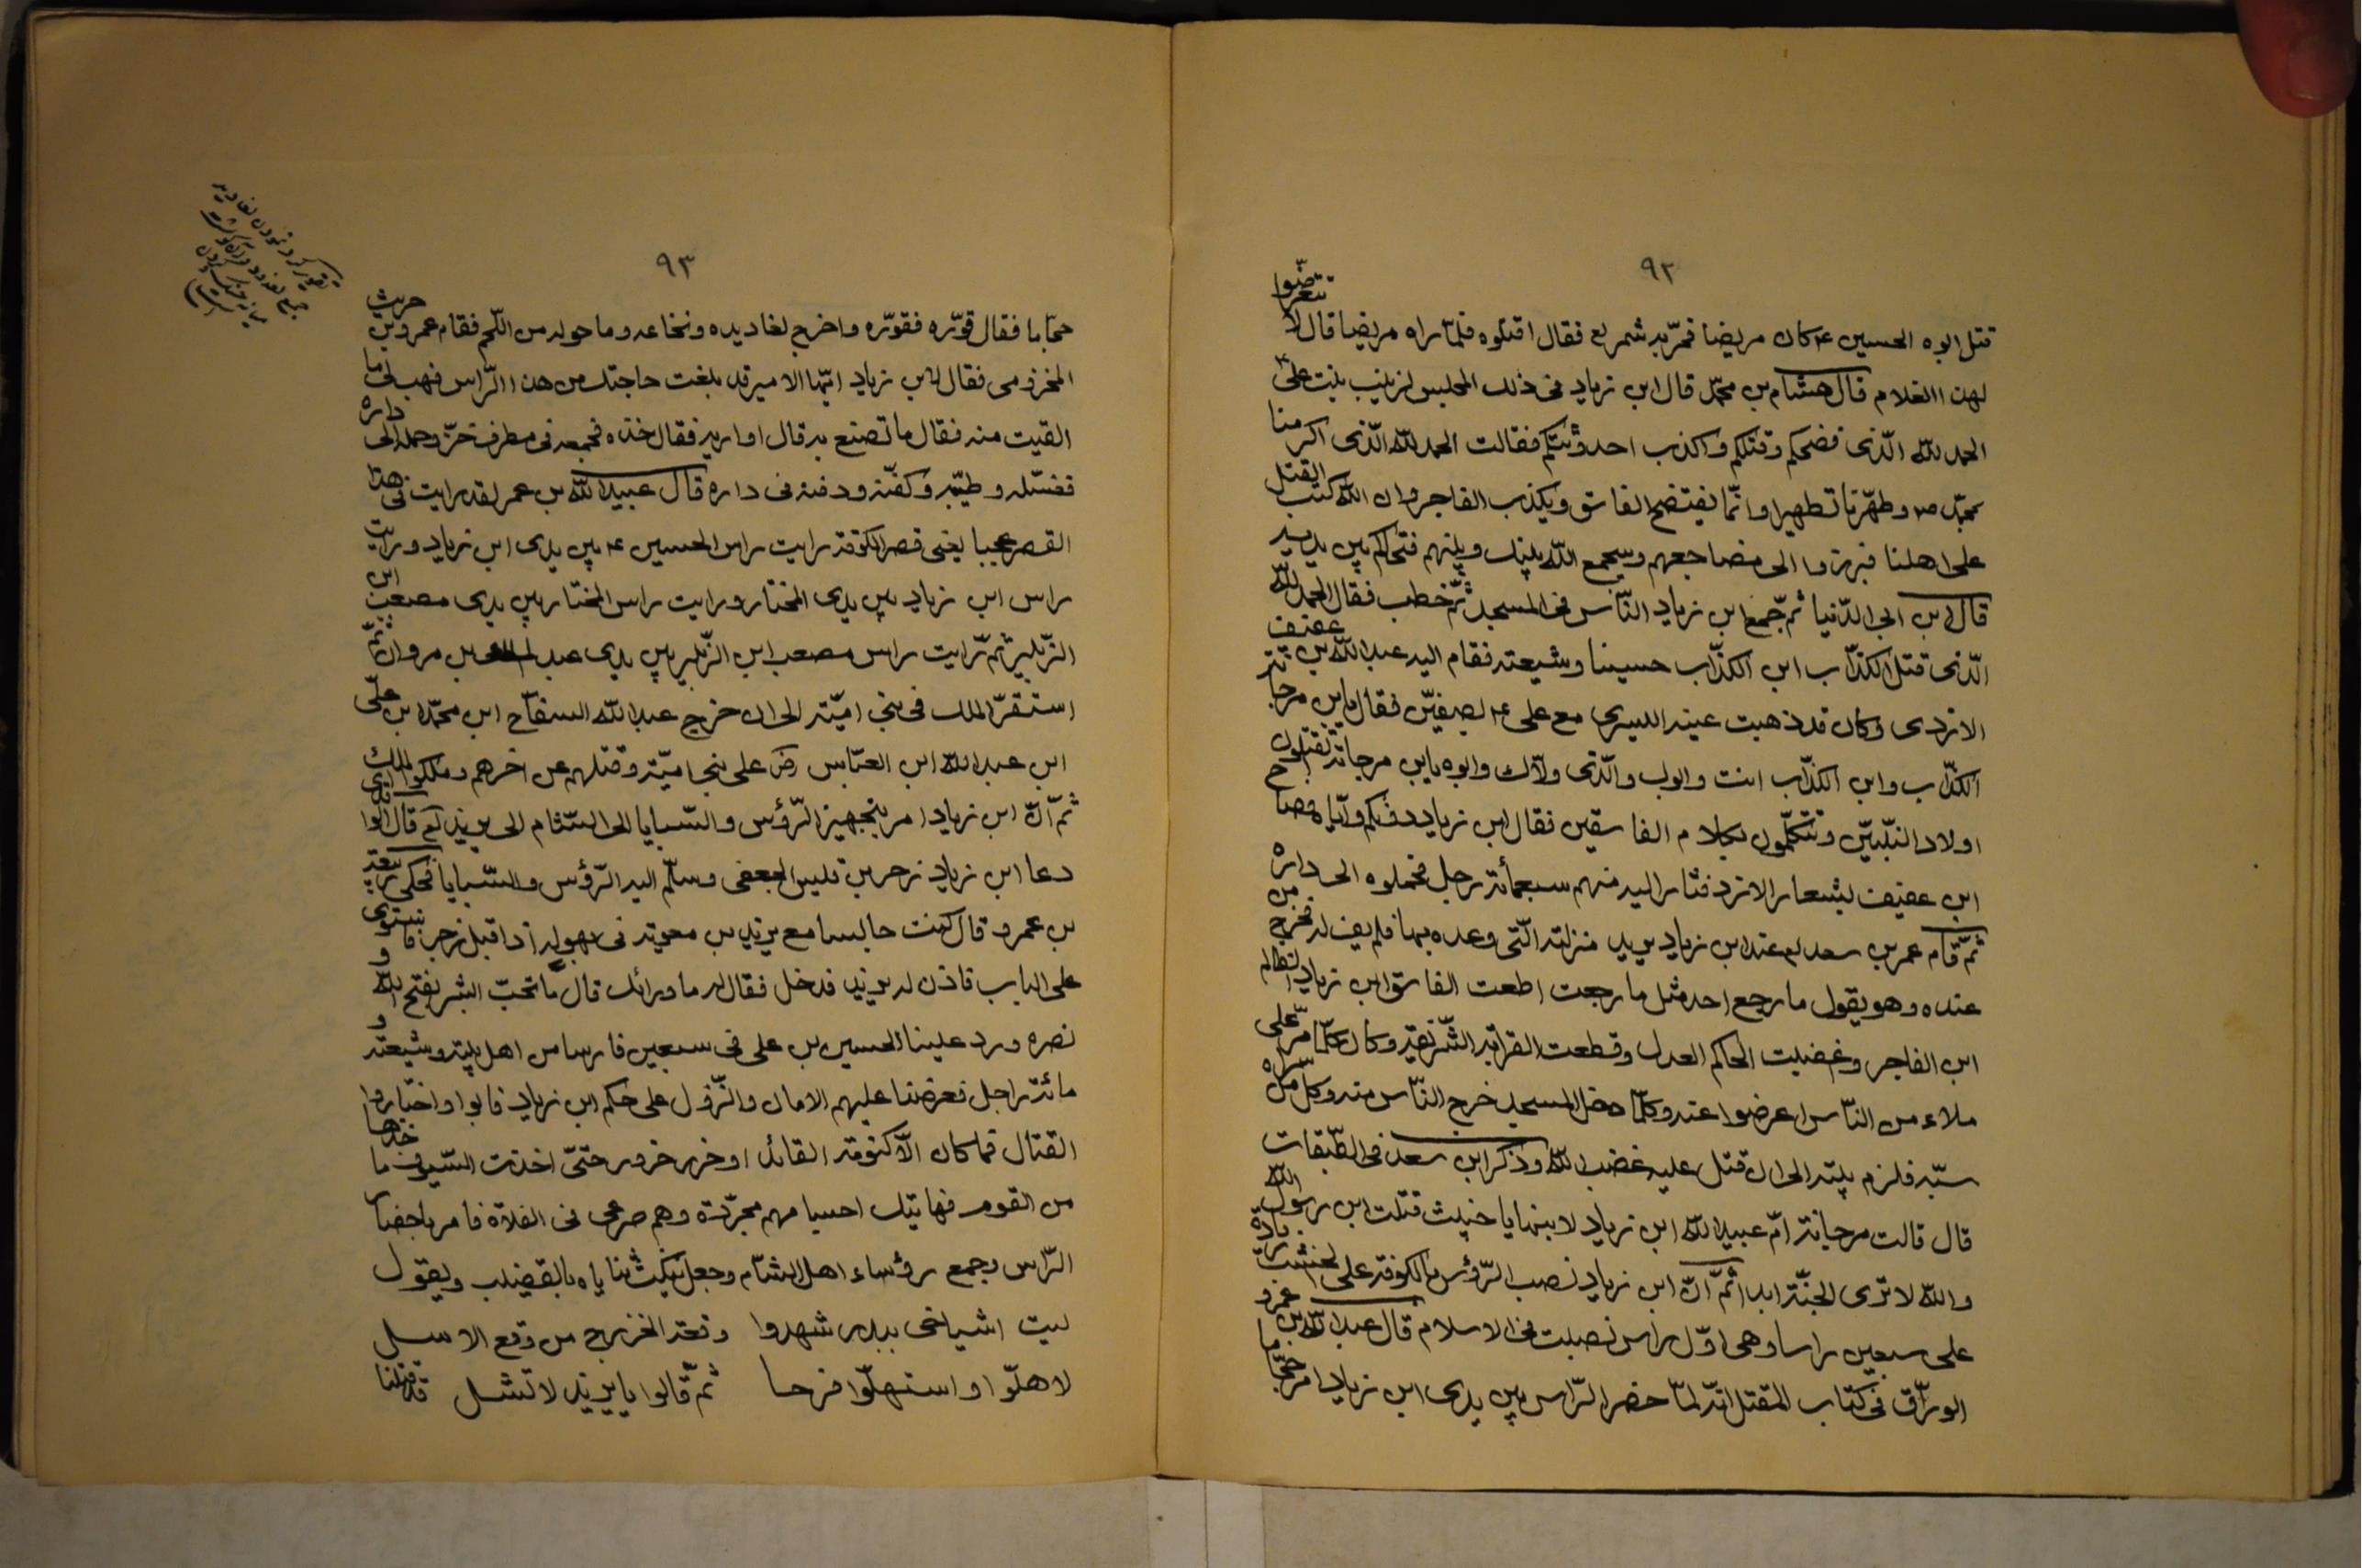 ٩٢
قتل ابوه الحسين ع كان مريضا فمرّ به شمر لع فقال اقتلوه فلمّا راه مريضا قال لا تتعرّضوا
لهذا الغلام قال هشام بن محمّد قال ابن زياد فى ذلك المجلس لزينب بنت علىّ ع
الحمد للّه الّذى فضحكم وقتلكم واكذب احدوثتكم فقالت الحمد للّه الّذى اكرمنا
بمحمّد ص وطهّرنا تطهيرا وانّما يفتضح الفاسق ويكذب الفاجر وان اللّه كتب القتل
على اهلنا فبرزوا الى مضاجعهم وسيجمع اللّه بينك وبينهم فتحاكم بين يديه
قال ابن ابى الدّنيا ثمّ جمع ابن زياد النّاس فى المسجد ثمّ خطب فقال الحمد للّه
الّذى قتل الكذّاب ابن الكذّاب حسينا وشيعته فقام اليه عبد اللّه بن عفيف
الازدى وكان قد ذهبت عينه اليسرى مع على ع بصفيّن فقال يابن مرجانة
الكذّاب وابن الكذّاب انت وابوك والّذى ولّاك وابوه يابن مرجانة تقتلون
اولاد النّبيّين وتتكلّمون بكلام الفاسقين فقال ابن زياد دونكم وايّاه فصاح
ابن عفيف بشعار الازد فثار اليه منهم سبعمأئة رجل فحملوه الى داره
ثمّ قام عمر بن سعد لع عند ابن زياد يريد منزلته الّتى وعده بها فلم يف له فخرج من
عنده وهو يقول ما رجع احد مثل ما رجعت اطعت الفاسق ابن زياد الظالم
ابن الفاجر وغضبت الحاكم العدل وقطعت القرابة الشّريفة وكان كلّما مرّ على
ملاء من النّاس اعرضوا عنه وكلّما دخل المسجد خرج النّاس منه وكل من راه
سبّه فلزم بيته الى ان قتل عليه غضب اللّه وذكر ابن سعد فى الطّبقات
قال قالت مرجانة امّ عبيد اللّه ابن زياد لابنها يا خبيث قتلت ابن رسول اللّه
واللّه لا ترى الجنّة ابدا ثمّ انّ ابن زياد نصب الرّؤس بالكوفة على الخشب
على سبعين راسا وهى اوّل راس نصبت فى الاسلام قال عبد اللّه بن عمرو
الورّاق فى كتاب المقتل انّه لمّا حضر الرّاس بين يدى ابن زياد امر حجّاما
٩٣
حجّاما فقال قوّره فقوّره واخرج لغاديده ونخاعه وما حوله من اللّحم فقام عمرو بن حريث
المخزومى فقال لابن زياد ايّها الامير قد بلغت حاجتك من هذا الرّاس فهب لى ما
القيت منه فقال ما تصنع به قال اواريه فقال خذه فجمعه فى مطرف خزّ وحمله الى داره
فغسّله وطيّبه وكفّنه ودفنه فى داره قال عبيد اللّه بن عمر لقد رايت فى هذا
القصر عجبا يعنى قصر الكوفة رايت راس الحسين ع بين يدى ابن زياد ورايت
راس ابن زياد بين يدى المختار ورايت راس المختار بين يدى مصعب ابن
الزّبير ثمّ رايت راس مصعب ابن الزّبير بين يدى عبد الملك بن مروان ثمّ
استقرّ الملك فى بنى اميّة الى ان خرج عبد اللّه السفاح ابن محمّد ابن علىّ
ابن عبد اللّه ابن العبّاس رض على بنى اميّة وقتلهم عن اخرهم وملكوا الملك
ثمّ انّ ابن زياد امر بتجهيز الرّؤس والسّبايا الى الشّام الى يزيد لع قال الواقدى
دعا ابن زياد زحر بن قيس الجعفى وسلّم اليه الرّؤس والسّبايا فحكى ربيعة
بن عمرو قال كنت جالسا مع يزيد بن معوية فى بهو له اذا قبل زحر فاستوى
على الباب فاذن له يزيد فدخل فقال له ما ورائك قال ما تحبّ ابشر بفتح اللّه و
نصره ورد علينا الحسين بن على فى سبعين فارسا من اهل بيته وشيعته و
مائة راجل فعرضنا عليهم الامان والنّزول على حكم ابن زياد فابوا واختاروا
القتال فما كان الّا كنومة القائل او خرر خرور حتىّ اخذت السّيوف ما خذها
من القوم فهاتيك اجسامهم مجرّدة وهم صرعى فى الفلاة فامر باحضار
الرّاس وجمع رؤساء اهل الشّام وجعل ينكث ثناياه بالقضيب ويقول
ليت اشياخى ببدر شهدوا وقعة الخزرج من وقع الاسل
لاهلّوا واستهلّوا فرحا ثمّ قالوا يا يزيد لا تشل قد قتلنا